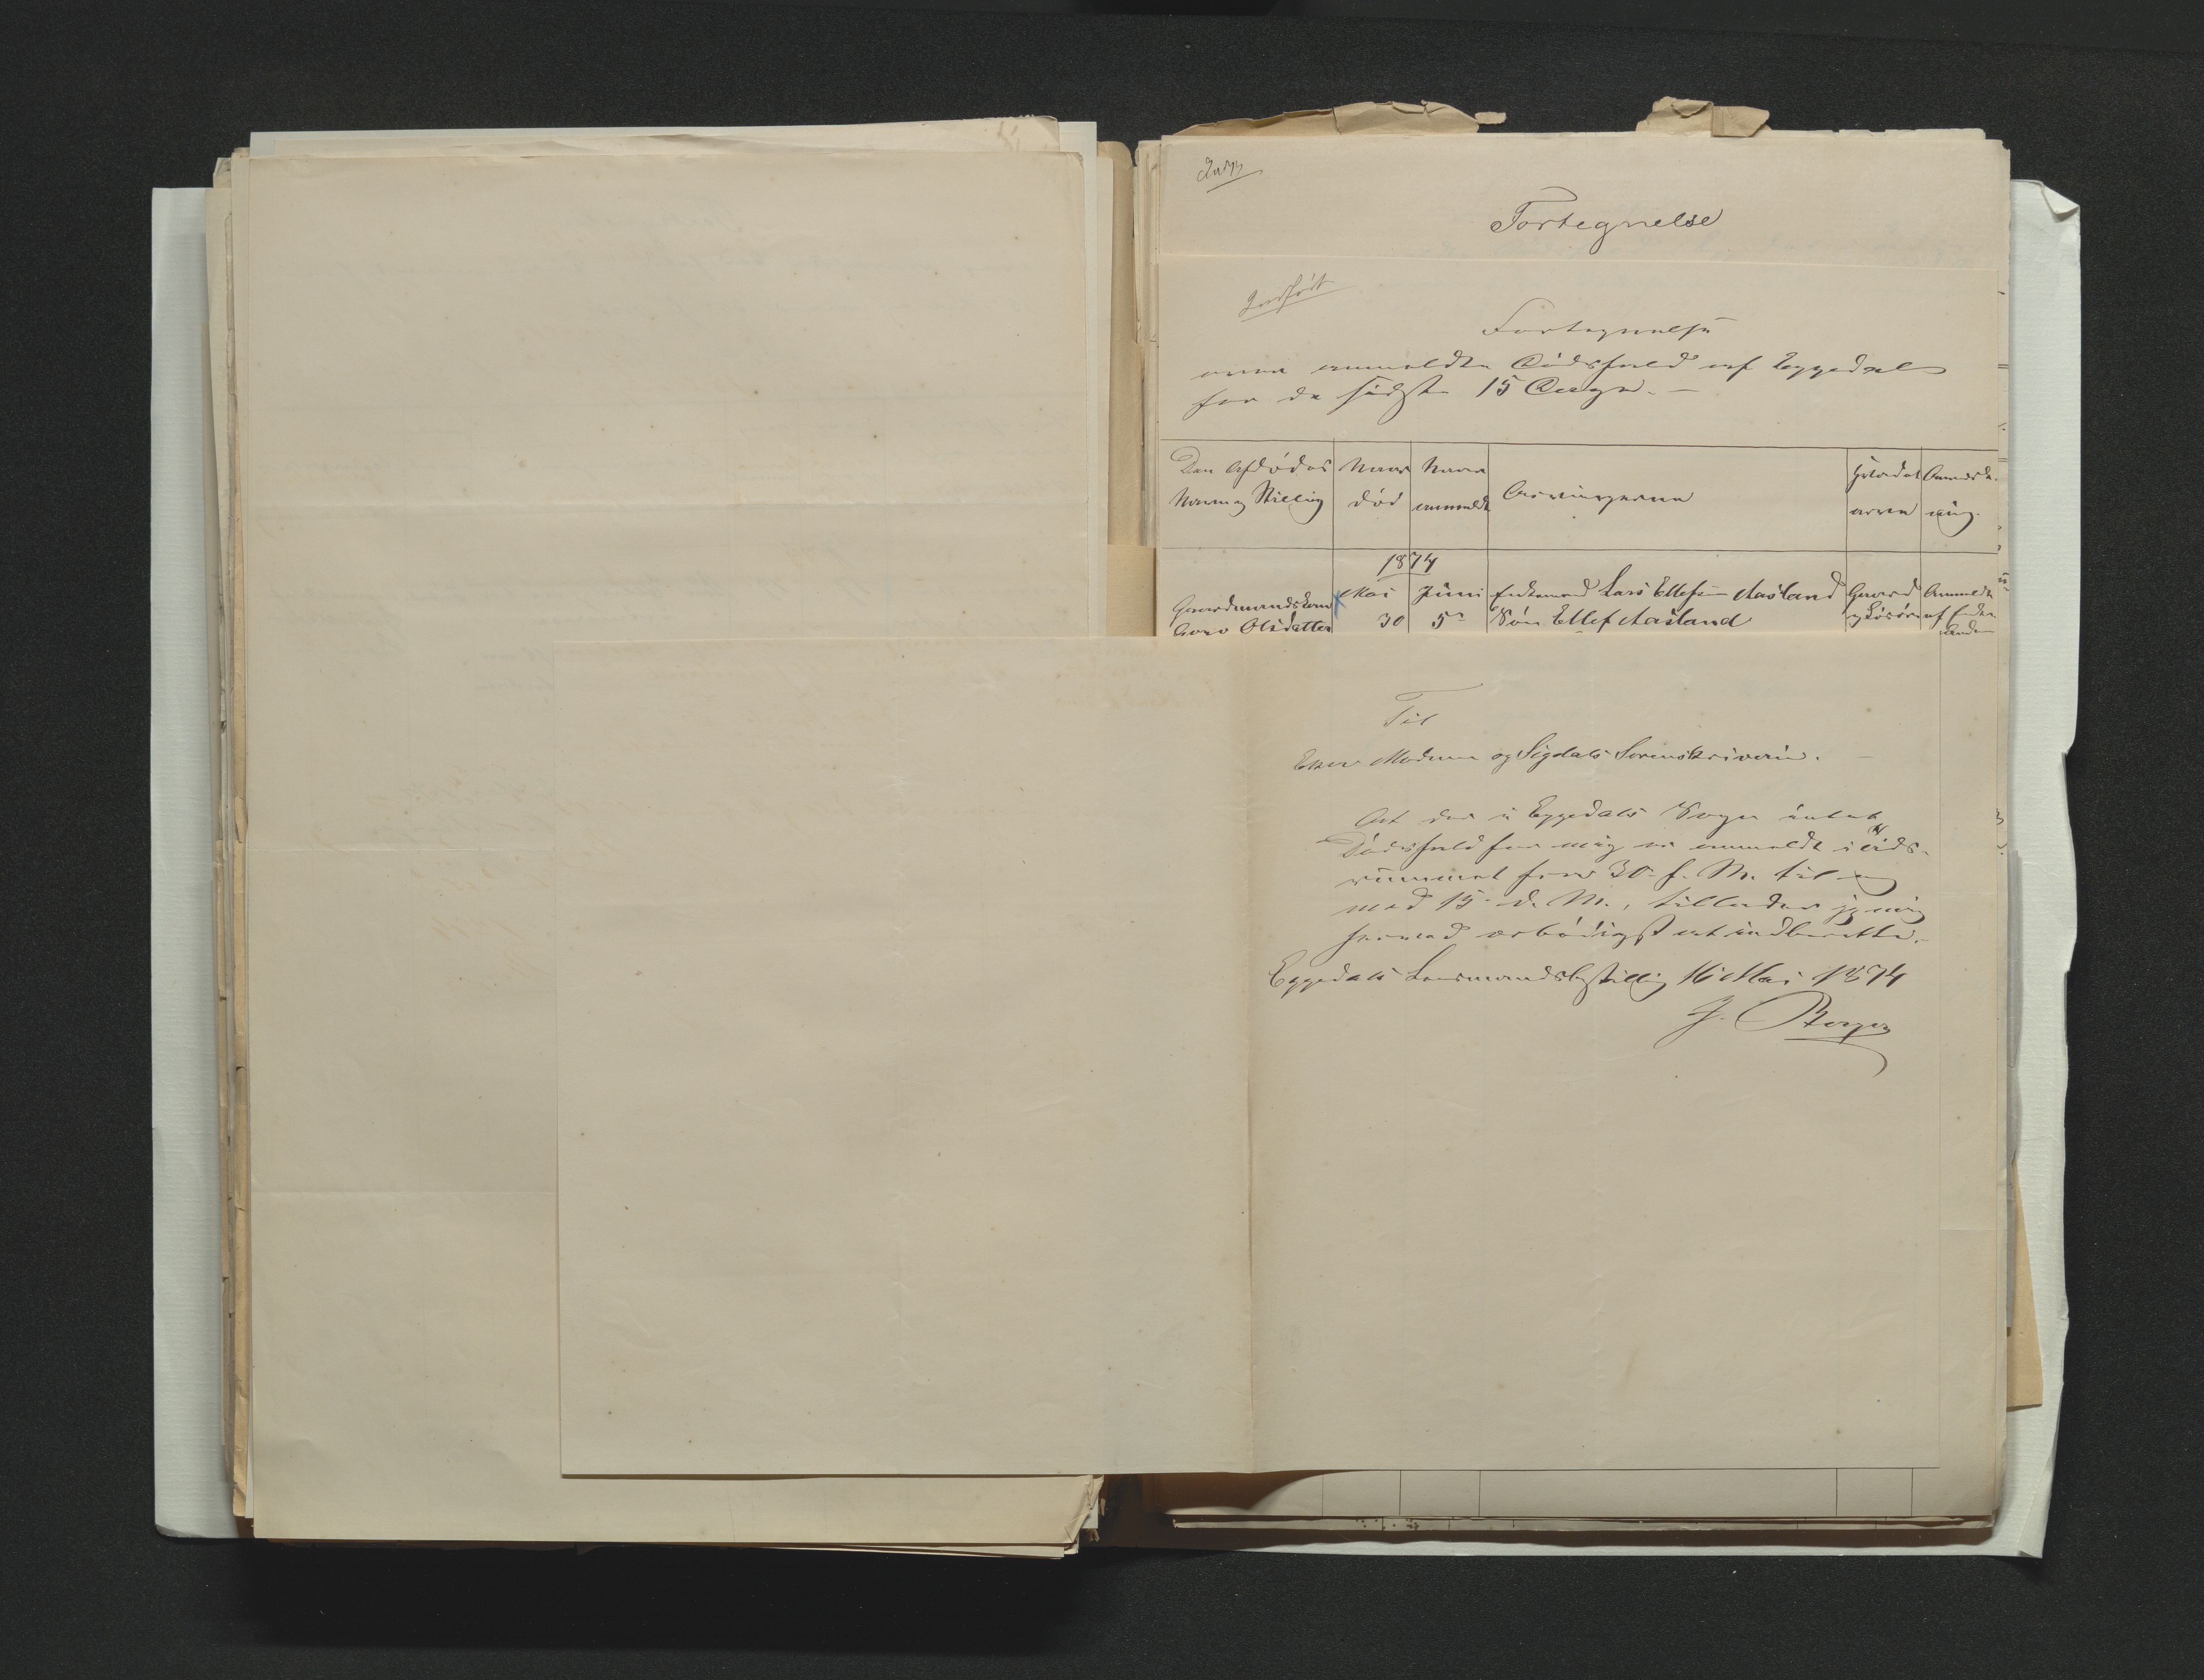 Fortegnelse
Indført
Fortegnelse
over anmeldte Dødsfald af Eggedal
for de sidste 15 Dage. —
Den Afdødes Navn og Stilling
Naar død
Naar anmeldt
Arvingerne
Hvoraf arven
Anmærkning.
1874
Gaardmandskone Goro Olsdatter
Mai 30
Juni 5
Enkemand Lars Ellefsen Aasland
Søn Ellef Aasland
Gaard og Løsøre
Anmeldt af Enkemanden
Til
Eker Modum og Sigdals Sorenskriveri. —
At der i Eggedals Sogn intet
Dødsfald for mig er anmeldt i Tids-
rummet fra 30 f. M. til og
med 15 d. M., tillader jeg mig
herved ærbødigst at indberette. —
Eggedals Lensmandsbestilling 16 Mai 1874